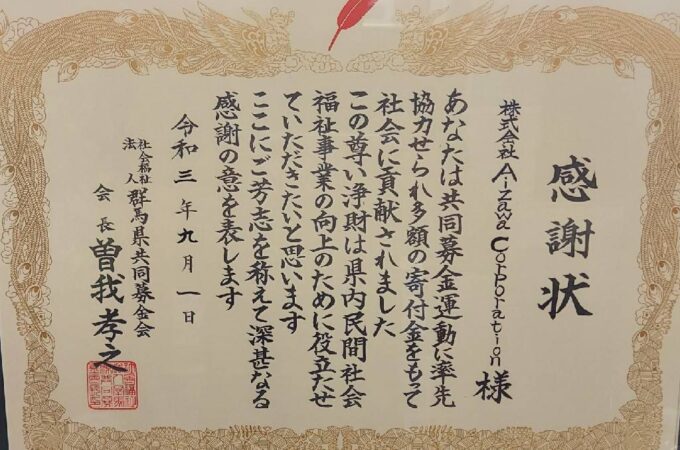 感謝状
株式会社 Aizawa Corporation 様
あなたは共同募金運動に率先
協力せられ多額の寄付金をもって
社会に貢献されました
この尊い浄財は県内民間社会
福祉事業の向上のために役立たせ
ていただきたいと思います
ここにご芳志を称えて深甚なる
感謝の意を表します
令和三年九月一日
社会福祉法人 群馬県共同募金会
会長 曽我孝之